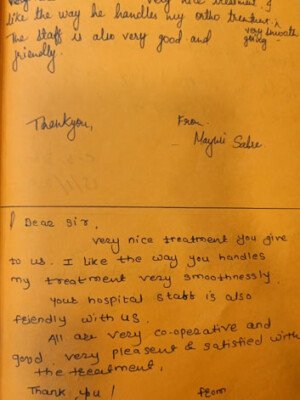 very nice treatment. I
like the way he handles my ortho treatment &
The staff is also very good and very smooth going.
friendly.
Thankyou,
From
- Mayuri
Dear Sir,
very nice treatment you give
to us. I like the way you handles
my treatment very smoothnessly.
Your hospital staff is also
friendly with us.
All are very co-operative and
good. very pleasent & satisfied with
the treetment.
Thank you!
from